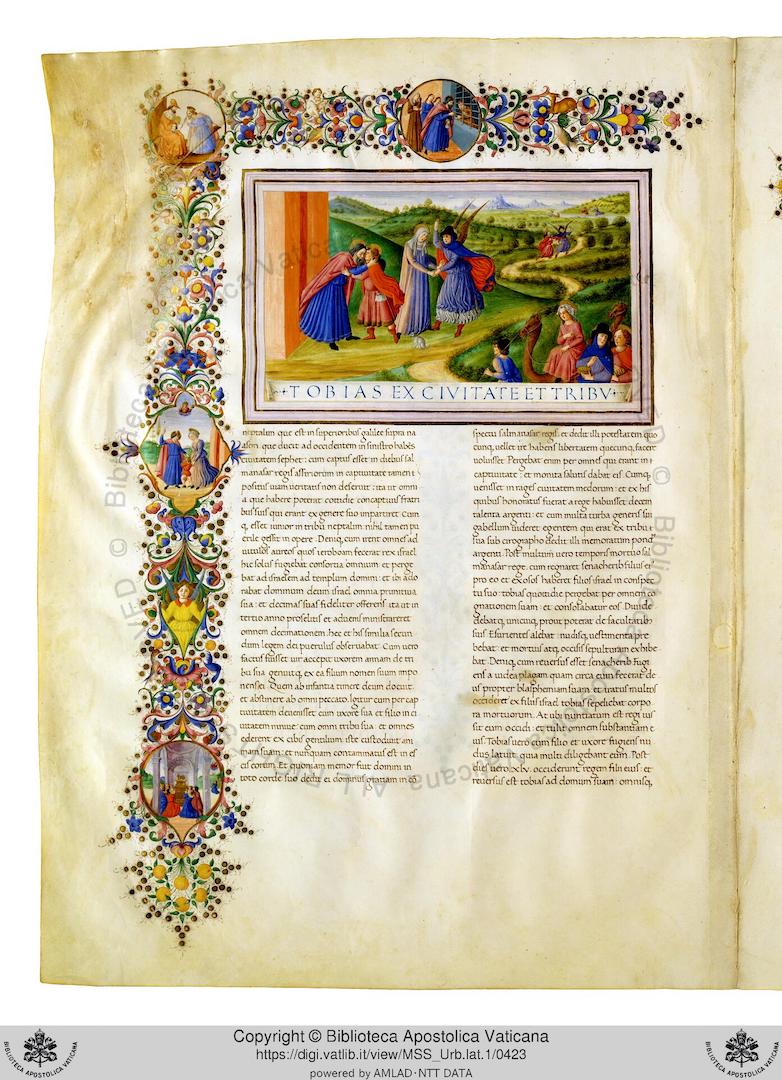 TOBIAS EX CIVITATE ET TRIBV
neptalim que est in superioribus galilee supra na
ason que ducit ad occidentem in sinistro habēs
civitatem sephet: cum captus esset in diebus sal
manasar regis assiriorum in captivitate tamen
positus viam veritatis non deseruit: ita ut omni
a que habere poterat cottidie concaptivis fratri
bus suis qui erant ex genere suo impartiret. Cum
q esset iunior in tribu neptalim nihil tamen pu
erile gessit in opere. Deniq cum irent omnes ad
vitulos aureos quos ieroboam fecerat rex israel
hic solus fugiebat consortia omnium et perge
bat ad israelem ad templum domini: et ibi ado
rabat dominum deum israel omnia primitiva
sua: et decimas suas fideliter offerens ita ut in
tertio anno proselitis et advenis ministraret
omnem decimationem. hec et his similia secun
dum legem dei puerulus observabat. Cum vero
factus fuisset vir accepit uxorem annam de tri
bu sua genuitq ex ea filium nomen suum impo
nens ei. Quem ab infantia timere deum docuit
et abstinere ab omni peccato. Igitur cum per cap
tivitatem devenisset cum uxore sua et filio in ci
vitatem ninive: cum omni tribu sua: et omnes
ederent ex cibis gentilium: iste custodivit ani
mam suam: et nunquam contaminatus est in es
cis eorum. Et quoniam memor fuit domini in
toto corde suo dedit ei dominus gratiam in cō
spectu salmanasar regis: et dedit illi potestatem quo
cunq vellet ire habens libertatem quecunq facere
voluisset. Pergebat enim per omnes qui erant in
captivitate: et monita salutis dabat eis. Cumq
venisset in rages civitatem medorum: et ex his
quibus honoratus fuerat a rege habuisset decem
talenta argenti: et cum multa turba generis sui
gabellum videret egentem qui erat ex tribu
sua sub cirographo dedit illi memoratum pond'
argenti. Post multum vero temporis mortuo sal
manasar rege. cum regnaret senacherib filius ei
pro eo et exosos haberet filios israel in conspec
tu suo: tobias quotidie pergebat per omnem co
gnationem suam: et consolabatur eos. Divide
debatq unicuiq prout poterat de facultatib
suis. Esurientes alebat: nudisq vestimenta pre
bebat: et mortuis atq occisis sepulturam exhibe
bat. Deniq cum reversus esset senacherib fugi
ens a iudea plagam quam circa eum fecerat de
us propter blasphemiam suam et iratus multos
occideret ex filiis israel tobias sepeliebat corpo
ra mortuorum. At ubi nuntiatum est regi ius
sit eum occidi: et tulit omnem substantiam e
ius. Tobias vero cum filio et uxore fugiens nu
dus latuit quia multi diligebant eum. Post
dies vero .xlv. occiderunt regem filii eius: et
reversus est tobias ad domum suam: omnisq
Copyright © Biblioteca Apostolica Vaticana
https://digi.vatlib.it/view/MSS_Urb.lat.1/0423
powered by AMLAD·NTT DATA
BIBLIOTECA APOSTOLICA VATICANA
BIBLIOTECA APOSTOLICA VATICANA